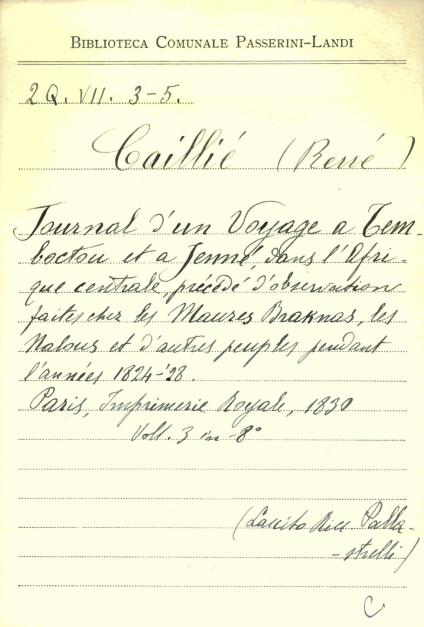 BIBLIOTECA COMUNALE PASSERINI-LANDI
2Q. VII. 3-5.
Caillié (René)
Journal d'un Voyage a Tem-
boctou et a Jenné, dans l'Afri-
que centrale, précédé d'observation
faites chez les Maures Braknas, les
Nalous et d'autres peuples pendant
l'années 1824-'28.
Paris, Imprimerie Royale, 1830
Voll. 3 in-8°
(Lascito Palla-
-strelli)
C